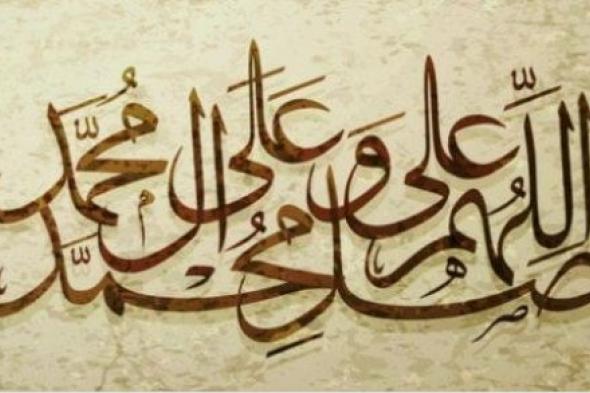 اللّهم صل على محمّد وعلى ال مُحمّد